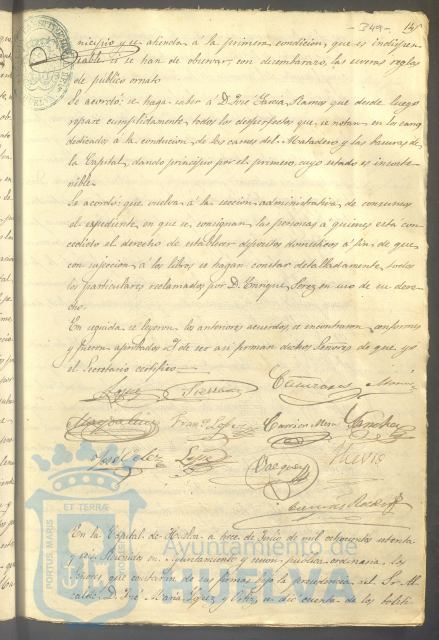 - 349 - 135
nicipio y se atienda á la primera condicion, que es indispen-
sable si se han de observar, con desembarazo, las severas reglas
de publico ornato
Se acordó: se haga saber á D. José Garcia Ramos que desde luego
repare cumplidamente, todos los desperfectos que se notan en los carros
dedicados á la conduccion de las carnes del Matadero y las basuras de
la Capital, dando principio por el primero, cuyo estado es insoste-
nible.
Se acordó: que vuelva á la seccion administrativa de consumos
el expediente, en que se consignan las personas á quienes está con-
cedido el derecho de establecer depositos domesticos á fin de que
con sujecion á los libros se hagan constar detalladamente, todos
los particulares reclamados por D. Enrique Perez en uso de su dere-
cho.
En seguida se leyeron los anteriores acuerdos, se encontraron conformes
y fueron aprobados y de ser asi firman dichos Señores de que yo
el Secretario certifico
Lopez
Franco Lopez Garrion Sanchez
Jose Velez Vazquez Nuevo
En la Capital de Huelva á trece de Julio de mil ochocientos setenta
y seis Reunidos su Ayuntamiento y sesion publica ordinaria los
Señores que constarán de sus firmas bajo la presidencia del Sr. Al-
calde D. José Maria Lopez y se dio cuenta de los boleti-
Ayuntamiento de
HUELVA
ET TERRÆ
PORTUS MARIS
CUSTODIA